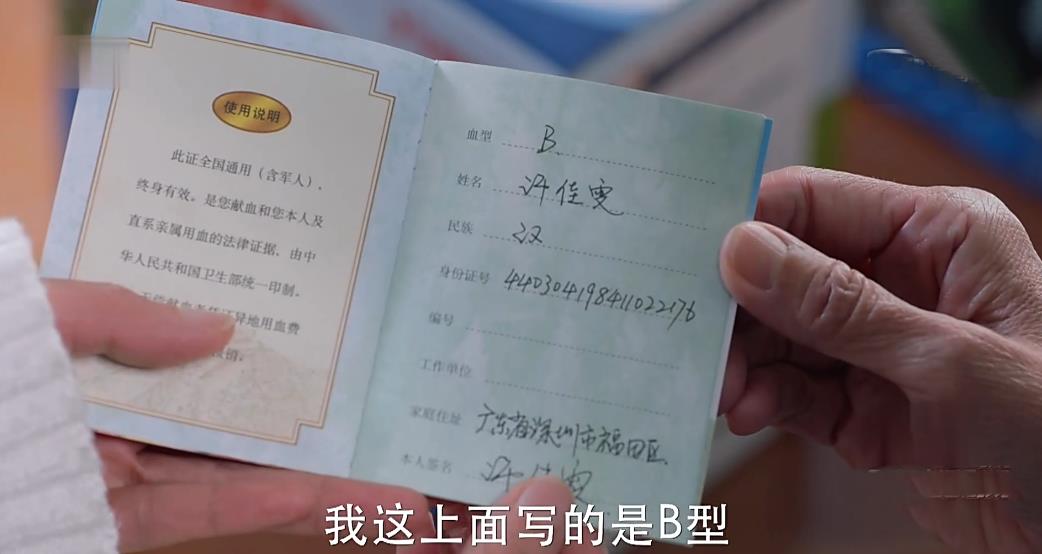 使用说明
此证全国通用（含军人）、
终身有效。是您献血和您本人及
直系亲属用血的法律证据、由中
华人民共和国卫生部统一印制。
异地用血费
血型 B
姓名 许佳雯
民族 汉
身份证号 440304198411022176
编号
工作单位
家庭住址 广东省深圳市福田区
本人签名 许佳雯
我这上面写的是B型